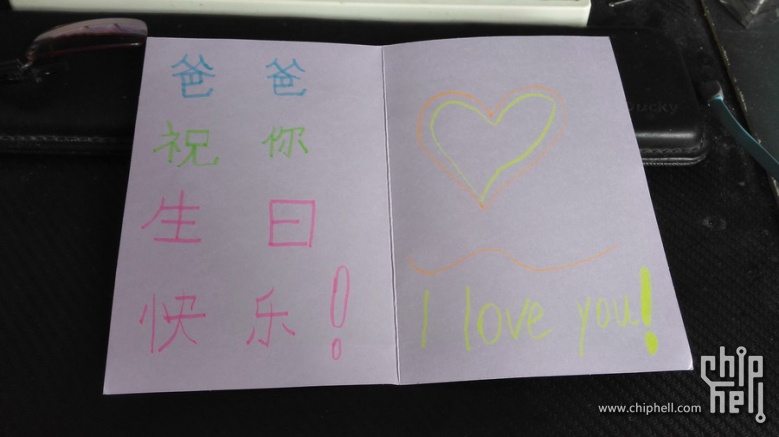 爸爸
祝你
生日
快乐!
I love you!
Ducky
www.chiphell.com
chip
hell